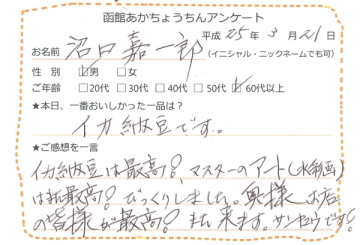 函館あかちょうちんアンケート
平成 25 年 3 月 21 日
お名前 沼口嘉一郎 (イニシャル・ニックネームでも可)
性 別 ☑男 □女
ご年齢 □20代 □30代 □40代 □50代 ☑60代以上
★本日、一番おいしかった一品は？
イカ納豆です。
★ご感想を一言
イカ納豆は最高！、マスターのアート(水彩画)
は最高！びっくりしました。奥様、お店
の皆様が最高！また来ます。サンキュウです！